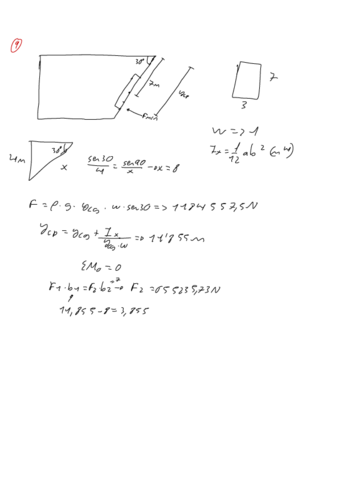 9
30°
7m
Fmin
7
3
W => 1
Ix = 1/12 ab² (m⁴)
4m
30°
x
sen30/4 = sen90/x → x = 8
F = ρ · g · ycg · w · sen30 => 1184557,5N
ycp = ycg + Ix/(ycg · w) => 11'855m
ΣMo = 0
F1 · b1 = F2 · b2 → F2 = 655235,73N
11,855 - 8 = 3,855